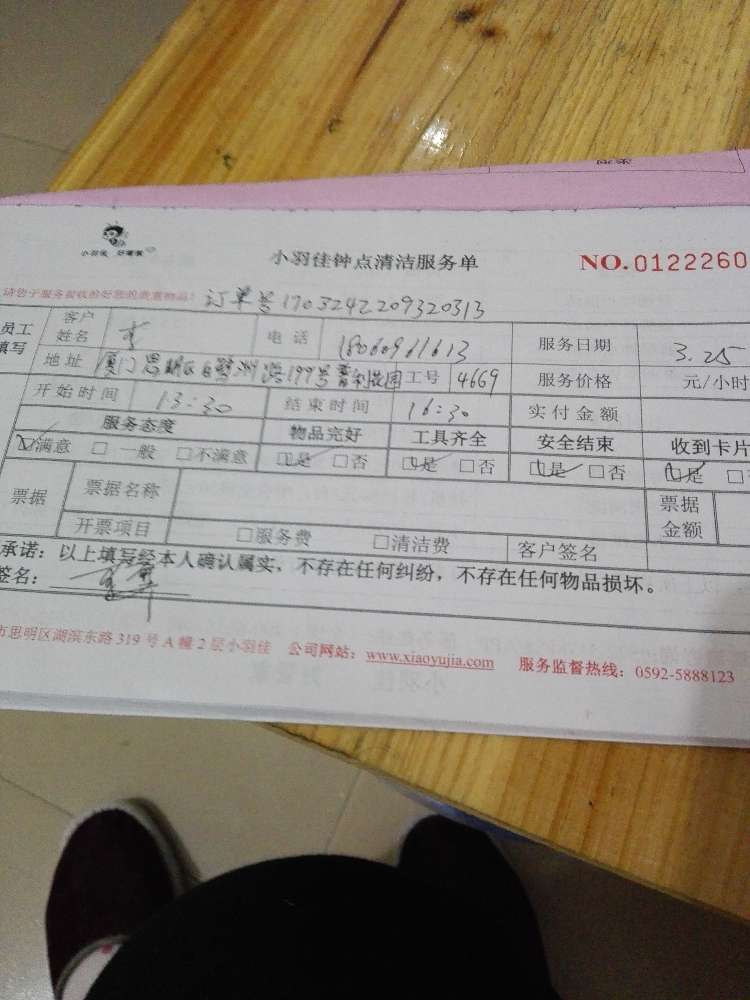 小羽佳 好管家
小羽佳钟点清洁服务单
NO.0122260
请您于服务前收拾好您的贵重物品! 订单号1703242209320313
员工填写 客户姓名 电话 18060961613 服务日期 3.25
地址 厦门思明区白鹭洲路199号 工号 4669 服务价格 元/小时
开始时间 13:30 结束时间 16:30 实付金额
服务态度 物品完好 工具齐全 安全结束 收到卡片
☑满意 □一般 □不满意 ☑是 □否 ☑是 □否 ☑是 □否 ☑是 □
票据 票据名称 票据金额
开票项目 □服务费 □清洁费 客户签名
承诺：以上填写经本人确认属实，不存在任何纠纷，不存在任何物品损坏。
签名：
市思明区湖滨东路319号A幢2层小羽佳 公司网站：www.xiaoyujia.com 服务监督热线：0592-5888123